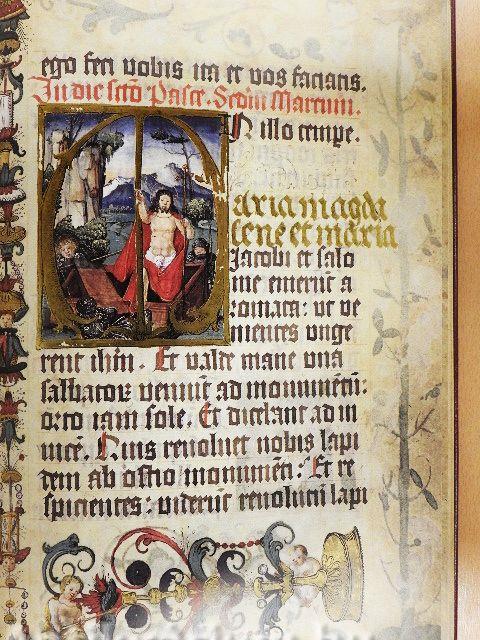 ego feci vobis ita et vos faciatis.
In die scto Pasce. Scdm Marcum.
In illo tempe.
Maria magda
lene et maria
Jacobi et salo
me emerut a
romata: ut ve
nientes unge
rent ihm. Et valde mane una
sabbatorz veniut ad monumetu:
orto iam sole. Et dicebant ad in
vice. Quis revoluet nobis lapi
dem ab ostio monumeti: Et re
spicientes: viderut revolutu lapi